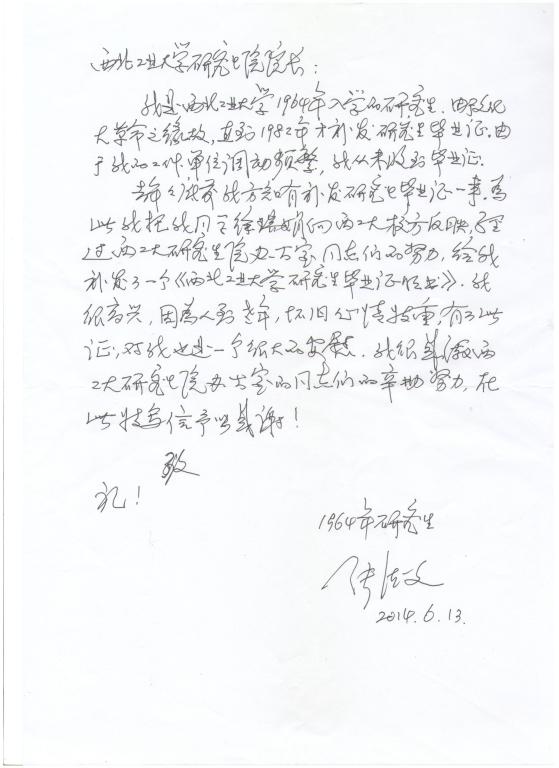 西北工业大学研究生院院长:
我是西北工业大学1964年入学的研究生.由于文化
大革命之缘故,直到1982年才补发研究生毕业证.由
于我的工作单位调动频繁,我从未收到毕业证.
我方知有补发研究生毕业证一事.為
此我把我同 向西工大校方反映,经
过西工大研究生院办公室同志们的努力,给我
补发了一个《西北工业大学研究生毕业证明书》.我
很高兴,因為人到老年,怀旧心情特重,有了此
证,对我也是一个很大的安慰.我很感激西
工大研究生院办公室的同志们的辛勤努力,在
此特写信予以感谢!
致
礼!
1964年研究生
2014.6.13.